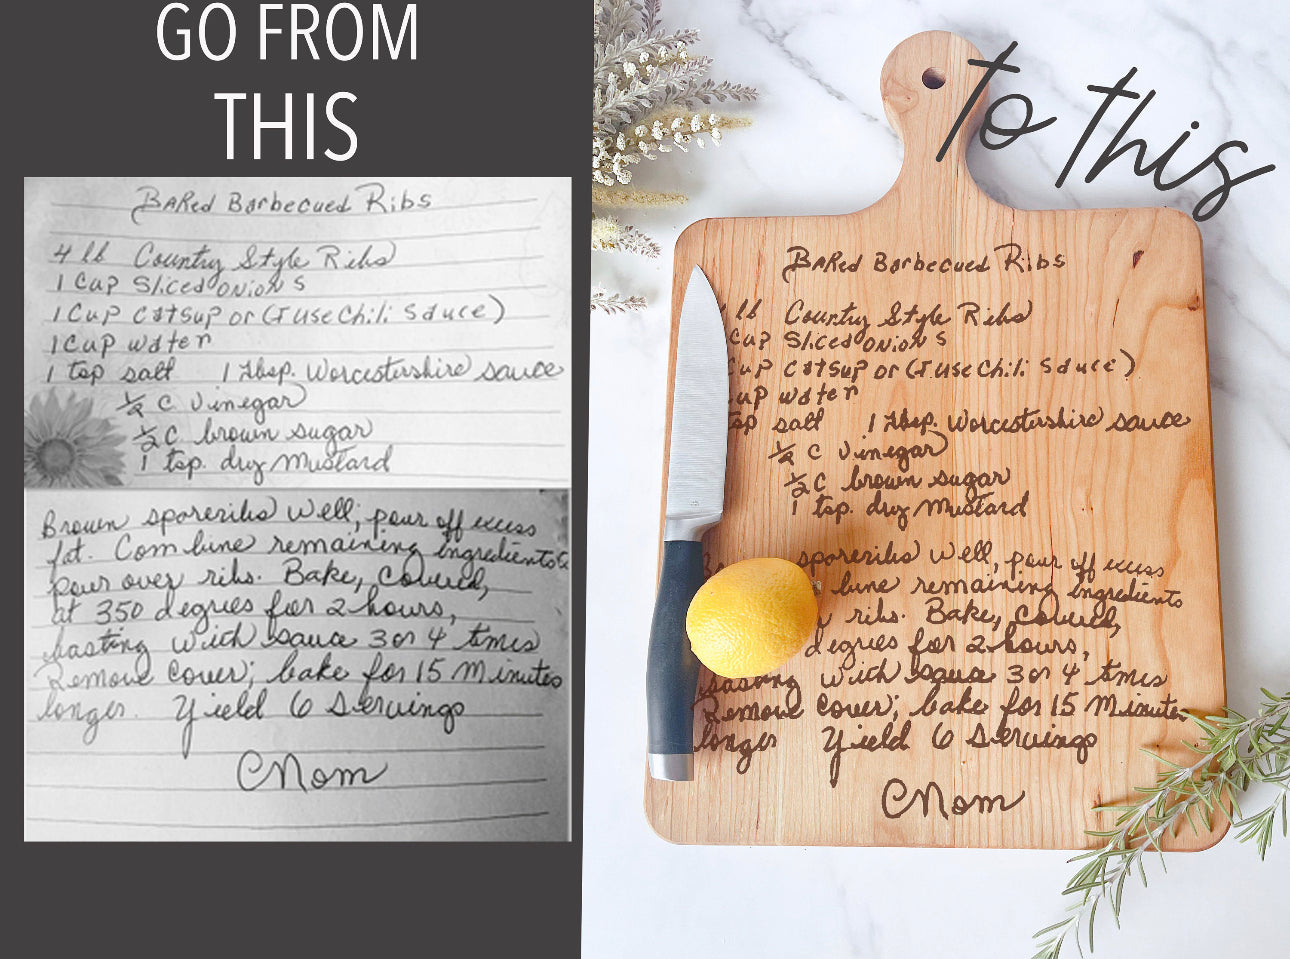 GO FROM
THIS
BaRed Barbecued Ribs
4 lb Country Style Ribs
1 Cup Sliced onions
1 Cup catsup or (I use Chili Sauce)
1 Cup water
1 tsp salt 1 Tbsp. Worcestershire sauce
1/2 C Vinegar
1/2 C brown sugar
1 tsp. dry Mustard
Brown spareribs Well; pour off excess
fat. Combine remaining ingredients &
pour over ribs. Bake, covered,
at 350 degrees for 2 hours,
basting with sauce 3 or 4 times
Remove cover; bake for 15 Minutes
longer. Yield 6 Servings
Mom
to this
BaRed Barbecued Ribs
lb Country Style Ribs
Cup Sliced onions
Cup catsup or (I use Chili Sauce)
up water
tsp salt 1 Tbsp. Worcestershire sauce
1/2 C Vinegar
1/2 C brown sugar
1 tsp. dry Mustard
spareribs Well, pour off excess
bine remaining ingredients
ribs. Bake, covered,
degrees for 2 hours,
basting with sauce 3 or 4 times
Remove cover; bake for 15 Minutes
longer Yield 6 Servings
Mom